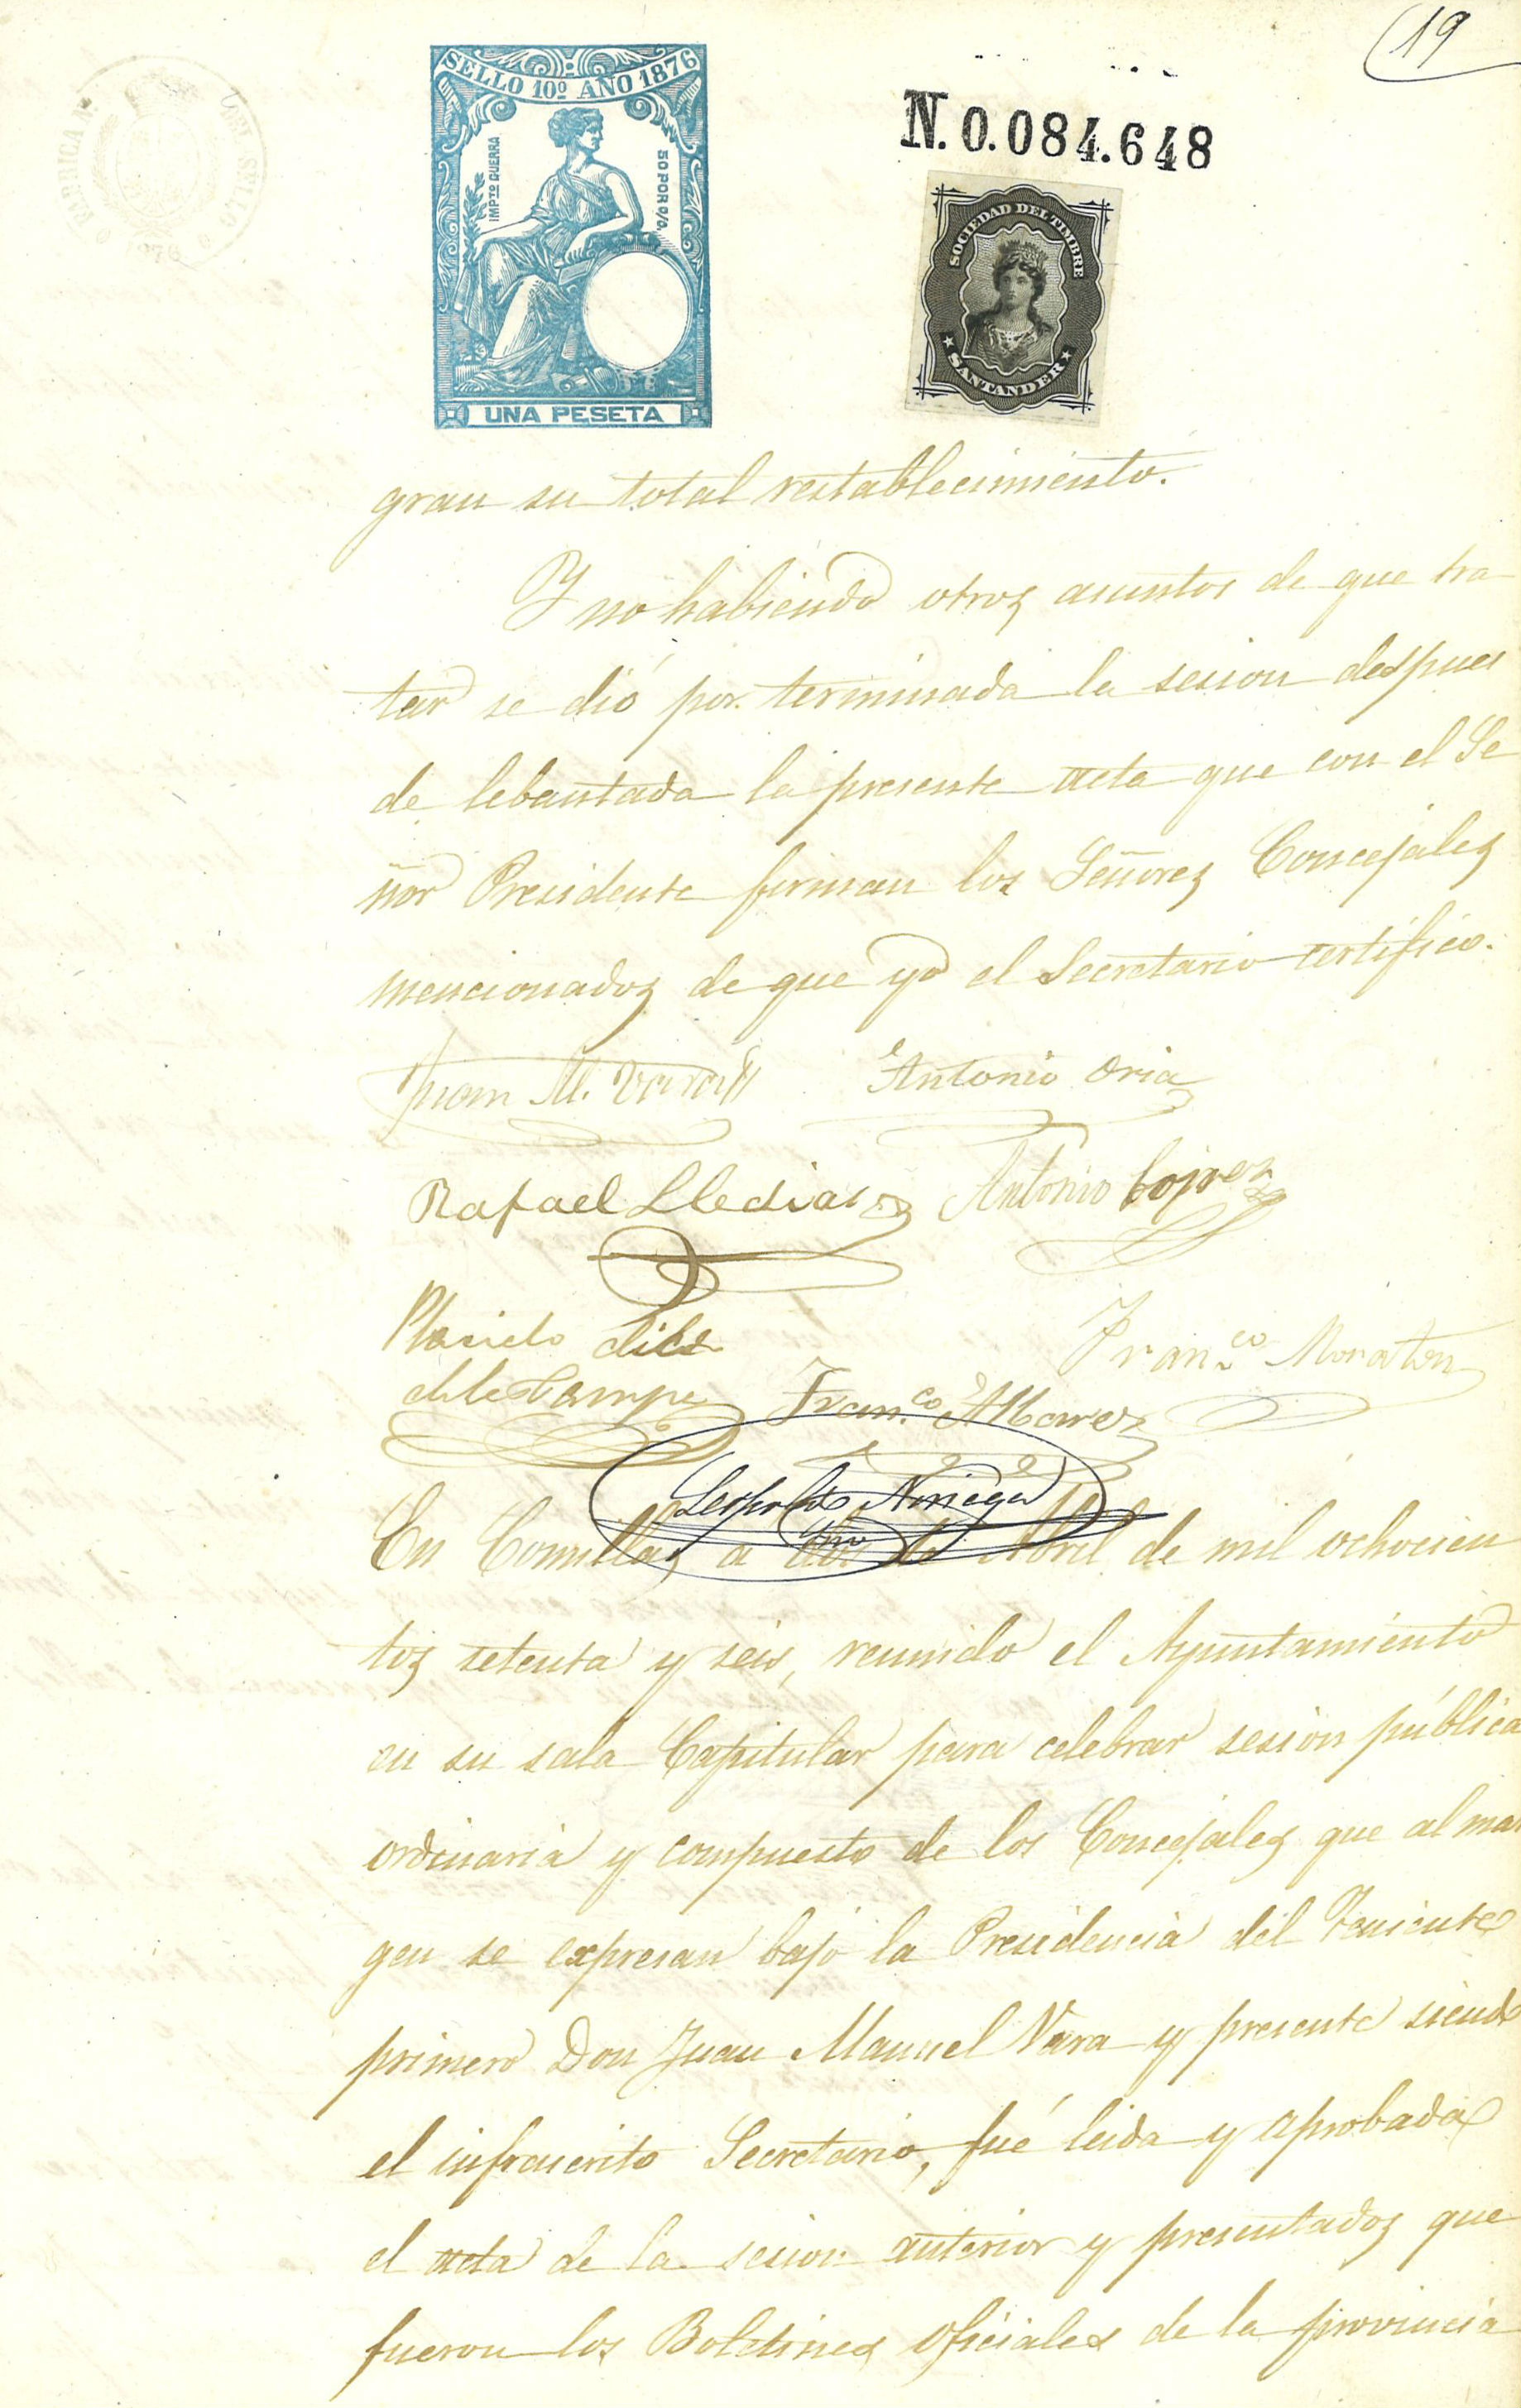 19
FABRICA N. DEL SELLO
1876
SELLO 10º AÑO 1876
IMPTO GUERRA
50 POR 0/0.
UNA PESETA
N. 0.084.648
SOCIEDAD DEL TIMBRE
SANTANDER
gran su total restablecimiento.
Y no habiendo otros asuntos de que tra
tar se dió por terminada la sesion despues
de lebantada la presente acta que con el Se
ñor Presidente firman los Señores Concejales
mencionados de que yo el Secretario certifico.
Juan M. Vara
Antonio Oria
Rafael Lledias
Antonio Lopez
Placido
de la Campa
Fran.co Moraton
Fran.co Alvarez
Leopoldo Noriega
En Comillas a dos de Abril de mil ochocien
tos setenta y seis, reunido el Ayuntamiento
en su sala Capitular para celebrar sesion pública
ordinaria y compuesto de los Concejales que al mar
gen se expresan bajo la Presidencia del Teniente
primero Don Juan Manuel Vara y presente siendo
el infrascrito Secretario, fué leida y aprobada
el acta de la sesion anterior y presentados que
fueron los Boletines oficiales de la provincia